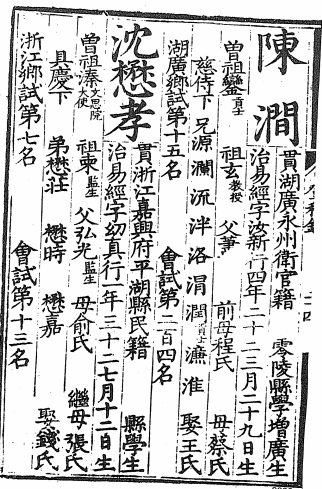 陳澗
貫湖廣永州衛官籍 零陵縣學增廣生
治易經字汝新行四年二十二三月二十九日生
曾祖鑾貢士 祖玄教授 父 前母程氏 母蔡氏
慈侍下 兄源 瀾 流 泮 洛 渭 澗貢士 濂 淮 娶王氏
湖廣鄉試第十五名 會試第二百四名
沈懋孝
貫浙江嘉興府平湖縣民籍 縣學生
治易經字幼真行一年三十二七月十二日生
曾祖溱文思院大使 祖東監生 父弘光監生 母俞氏 繼母張氏
具慶下 弟懋莊 懋時 懋嘉 娶錢氏
浙江鄉試第七名 會試第十三名